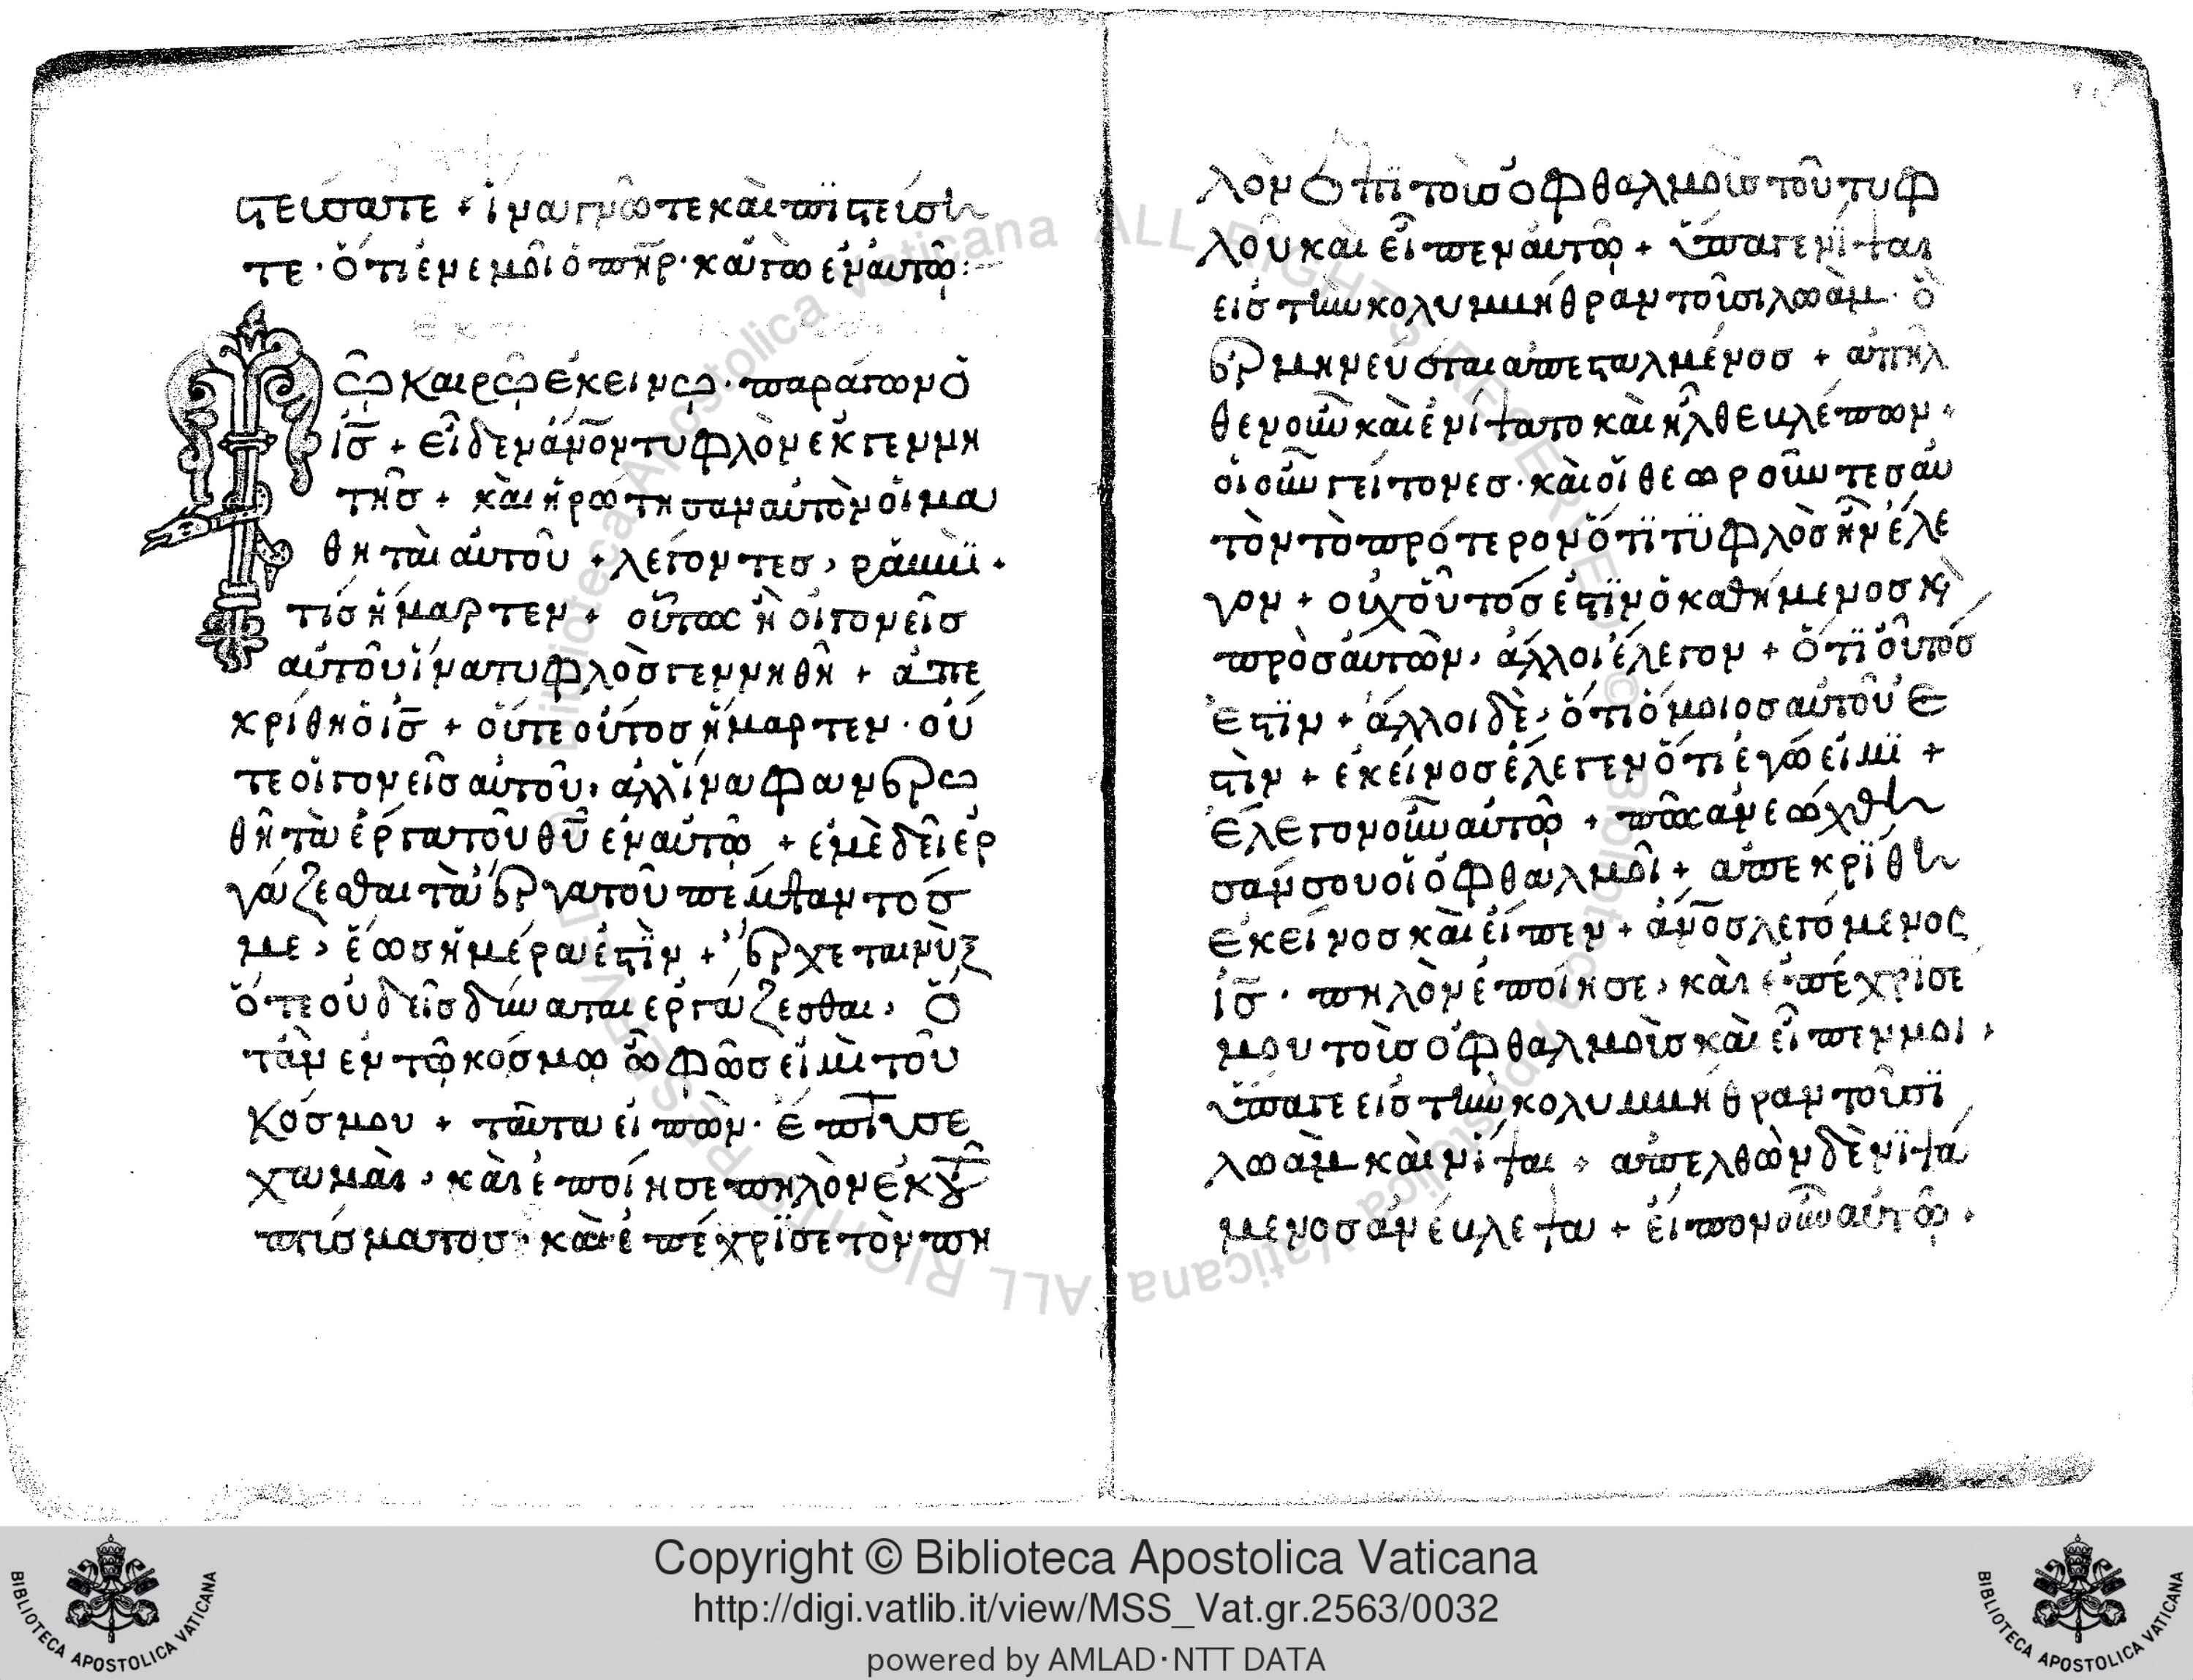 στεύσατε + ἵνα γνῶτε καὶ πϊστεύση
τε · ὅτι ἐν ἐμοὶ ὁ πη̅ρ · κἀγὼ ἐν αὐτῶ :
Τῶ καιρῶ ἐκείνω · παράγων ὁ
ἰ̅ς̅ + εἶδεν ἀν̅ον τυφλὸν ἐκ γεννη
τῆς + καὶ ἠρώτησαν αὐτὸν οἱ μα
θηταὶ αὐτοῦ + λέγοντες, ραββϊ ·
τίς ἥμαρτεν + οὗτος ἢ οἱ γονεῖς
αὐτοῦ ἵνα τυφλὸς γεννηθῆ + ἀπε
κρίθη ὁ ι̅ς̅ + οὔτε οὗτος ἥμαρτεν · οὔ
τε οἱ γονεῖς αὐτοῦ, ἀλλ' ἵνα φανερω
θῆ τὰ ἔργα τοῦ θ̅υ̅ ἐν αὐτῶ + ἐμὲ δεῖ ἐρ
γάζεσθαι τὰ ἔργα τοῦ πέμψαντός
με, ἕως ἡμέρα ἐστὶν + ἔρχεται νὺξ
ὅτε οὐδεὶς δύναται ἐργάζεσθαι, ὅ
τὰν ἐν τῶ κόσμω ὦ φῶς εἰμὶ τοῦ
κόσμου + ταῦτα εἰπὼν · ἔπτυσε
χαμαὶ, καὶ ἐποίησε πηλὸν ἐκ τοῦ
πτύσματος · καὶ ἐπέχρϊσε τὸν πη
λὸν ἐπῒ τοὺς ὀφθαλμοὺς τοῦ τυφ
λοῦ καὶ εἶπεν αὐτῶ + ὕπαγε νίψαι
εἰς τὴν κολυμβήθραν τοῦ σιλωὰμ · ὃ
ἑρμηνεύεται ἀπεσταλμένος + ἀπῆλ
θεν οὖν καὶ ἐνίψατο καὶ ἦλθε βλέπων ·
οἱ οὖν γείτονες · καὶ οἱ θεωροῦντες αὐ
τὸν τὸ πρότερον ὅτϊ τϋφλὸς ἦν ἔλε
γον + οὐχ οὗτός ἐστϊν ὁ καθήμενος κ̀
προσαιτῶν, ἄλλοι ἔλεγον + ὅτϊ οὗτός
ἐστϊν + ἄλλοι δὲ, ὅτι ὅμοιος αὐτοῦ ἐ
στὶν + ἐκεῖνος ἔλεγεν ὅτι ἐγώ εἰμϊ +
ἔλεγον οὖν αὐτῶ + πῶς ἀνεώχθη
σάν σου οἱ ὀφθαλμοὶ + ἀπεκρΐθη
ἐκεῖνος καὶ εἶπεν + ἀν̅ος λεγόμενος
ἰ̅ς̅ · πηλὸν ἐποίησε, καὶ ἐπέχρϊσέ
μου τοὺς ὀφθαλμοὺς καὶ εἶπεν μοι ,
ὕπαγε εἰς τὴν κολυμβήθραν τοῦ σϊ
λωὰμ καὶ νίψαι + ἀπελθὼν δὲ νϊψά
μενος ἀνέβλεψα + εἶπον οὖν αὐτῶ ·
Copyright © Biblioteca Apostolica Vaticana
http://digi.vatlib.it/view/MSS_Vat.gr.2563/0032
powered by AMLAD·NTT DATA
BIBLIOTECA APOSTOLICA VATICANA
BIBLIOTECA APOSTOLICA VATICANA